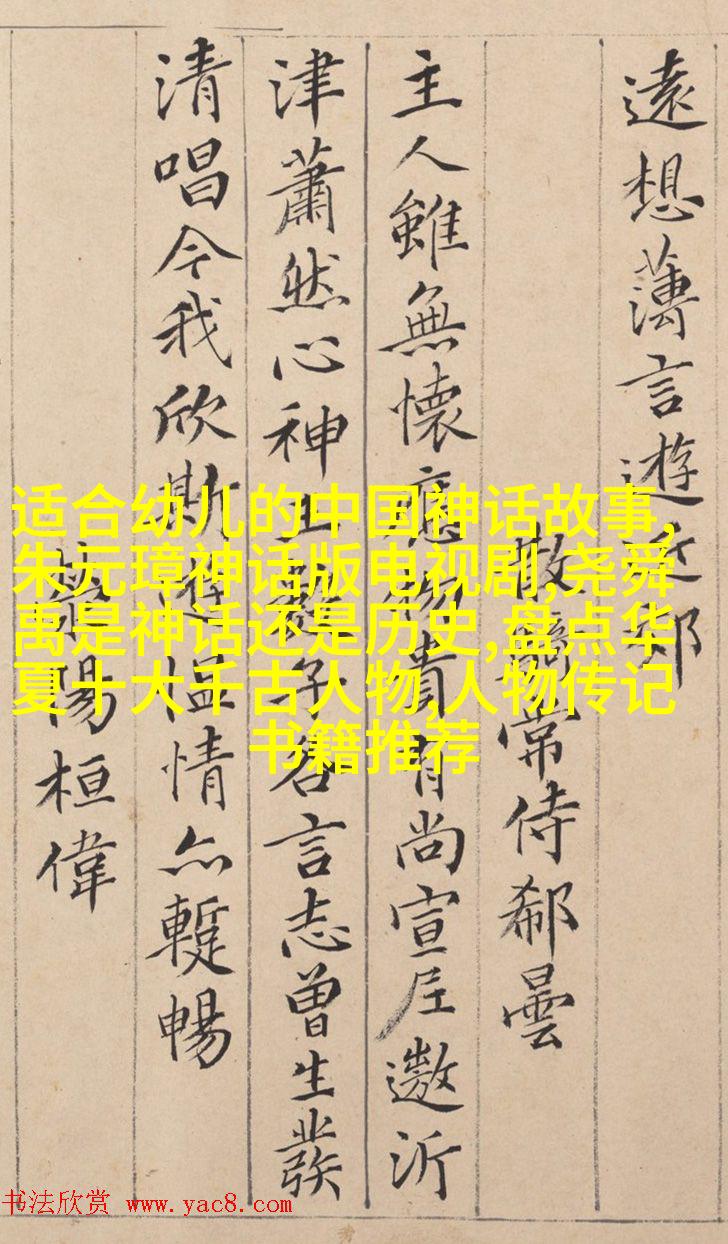 遠想薄言遊近郊
散騎常侍郗曇
主人雖無懷應物貴有尚宣尼遨沂
津蕭然心神王數子各言志曾生發
清唱今我欣斯遊慍情亦暫暢
滎陽桓偉
适合幼儿的中国神话故事,
朱元璋神话版电视剧,尧舜
禹是神话还是历史,盘点华
夏十大千古人物,人物传记
书籍推荐
书法欣赏 www.yac8.com